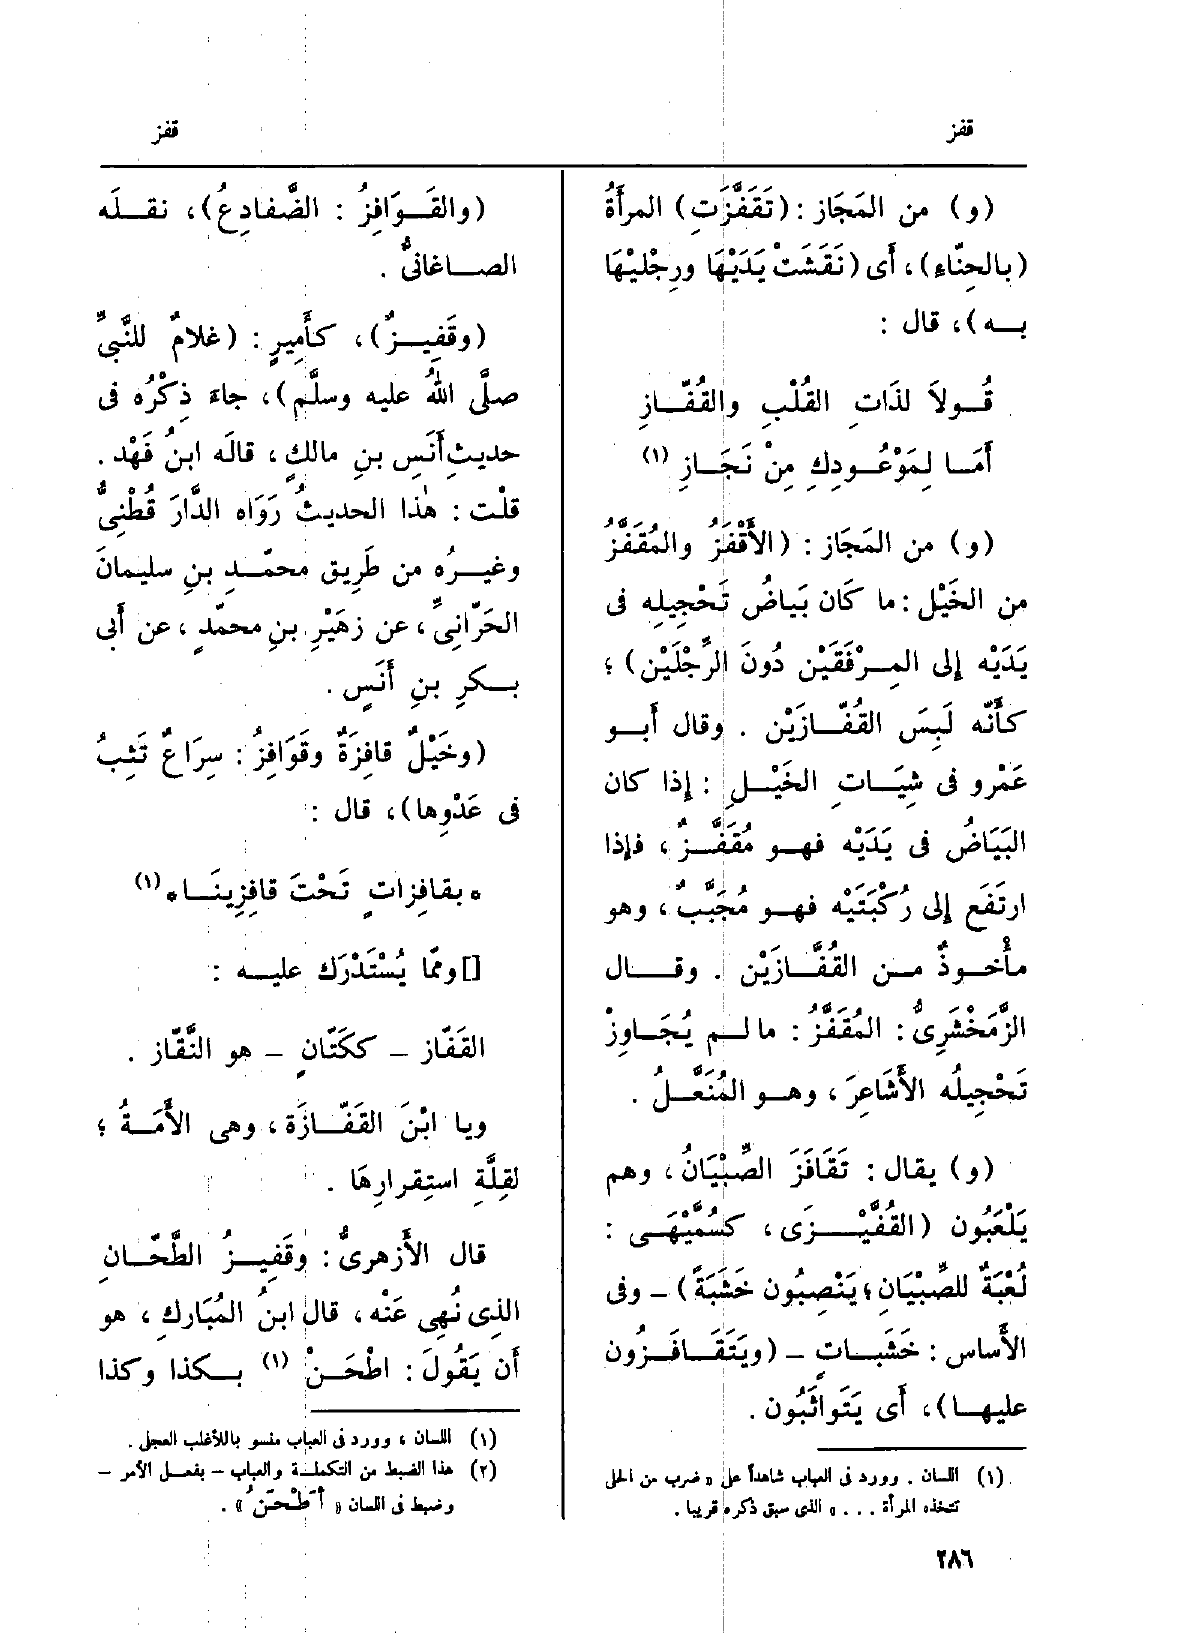 قفز
قفز
(و) من المَجَاز : (تَقَفَّزَت) المرأَةُ
(بالحِنّاءِ)، أَى (نَقَشَتْ يَدَيْهَا ورِجْليْهَا
بـه)، قال :
قُـولاَ لذَاتِ القُلْبِ والقُفّـازِ
أَمَـا لِمَوْعُـودِكِ مِنْ نَجَـازِ (١)
(و) من المَجَاز : (الأَقْفَزُ والمُقَفَّزُ
من الخَيْل : ما كَان بَيَاضُ تَحْجِيلِه فى
يَدَيْه إلى المِـرْفَقَيْن دُونَ الرِّجْلَيْن) ؛
كأَنّه لَبِسَ القُفّـازَيْن . وقال أَبـو
عَمْرو فى شِيَـاتِ الخَيْـلِ : إذا كان
البَيَاضُ فى يَدَيْه فهـو مُقَفَّـزٌ ، فإذا
ارتَفَع إلى رُكْبَتَيْه فهـو مُجَبَّبٌ ، وهو
مأْخـوذٌ مـن القُفَّـازَيْن . وقـال
الزَّمَخْشَرِىُّ : المُقَفَّزُ : ما لـم يُجَـاوِزْ
تَحْجِيلُه الأَشَاعِرَ ، وهـو المُنَعَّـلُ .
(و) يقال : تَقَافَزَ الصِّبْيَانُ ، وهم
يَلْعَبُون (القُفَّيْـزَى ، كسُمَّيْهَـى :
لُعْبَةٌ للصِّبْيَانِ ؛ يَنْصِبُون خَشَبَةً) – وفى
الأَساس : خَشَبـاتٍ – (ويَتَقَـافَـزُون
عليهـا)، أَى يَتَواثَبُون .
(١) اللسان . وورد فى العباب شاهداً على « ضرب من الحلى
تتخذه المرأة . . . » الذى سبق ذكره قريبا .
٢٨٦
(والقَـوَافِزُ : الضَّفادِعُ)، نقـلَه
الصـاغانىُّ .
(وقَفِيـزٌ)، كأَمِيرٍ : (غلامٌ للنَّبىِّ
صلَّى اللهُ عليه وسلَّم)، جاءَ ذِكْرُه فى
حديثِ أَنَسِ بنِ مالكٍ ، قالَه ابنُ فَهْد .
قلْت : هٰذا الحديثُ رَوَاه الدَّارَ قُطْنِىُّ
وغيـرُه من طَرِيق محمّـدِ بنِ سليمانَ
الحَرّانِىِّ ، عن زهَيْرِ بنِ محمّدٍ ، عن أَبى
بـكرِ بنِ أَنَسٍ .
(وخَيْلٌ قافِزَةٌ وقَوَافِزُ : سِرَاعٌ تَثِبُ
فى عَدْوِها)، قال :
* بقافِزاتٍ تَحْتَ قافِزِينَـا * (١)
[] وممّا يُسْتَدْرَك عليـه :
القَفّاز – ككَتّانٍ – هو النَّقّاز .
ويا ابْنَ القَفّـازَة ، وهى الأَمَـةُ ؛
لقِلَّةِ استِقرارِهَا .
قال الأَزهرىُّ : وقَفِيـزُ الطَّحّـانِ
الذِى نُهِى عَنْه ، قال ابنُ المُبَارك ، هو
أَن يَقُولَ : اطْحَـنْ (١) بـكذا وكذا
(١) اللسان ، وورد فى العباب منسو باللأغلب العجل .
(٢) هذا الضبط من التكملـة والعباب – بفعـل الأمر –
وضبط فى اللسان « أَطْحَنُ » .